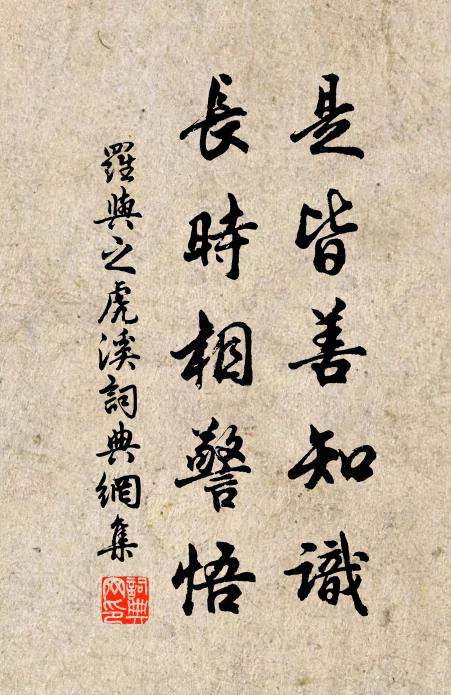 是皆善知識
長時相警悟
羅與之虎溪詞典網集
詞典
网印